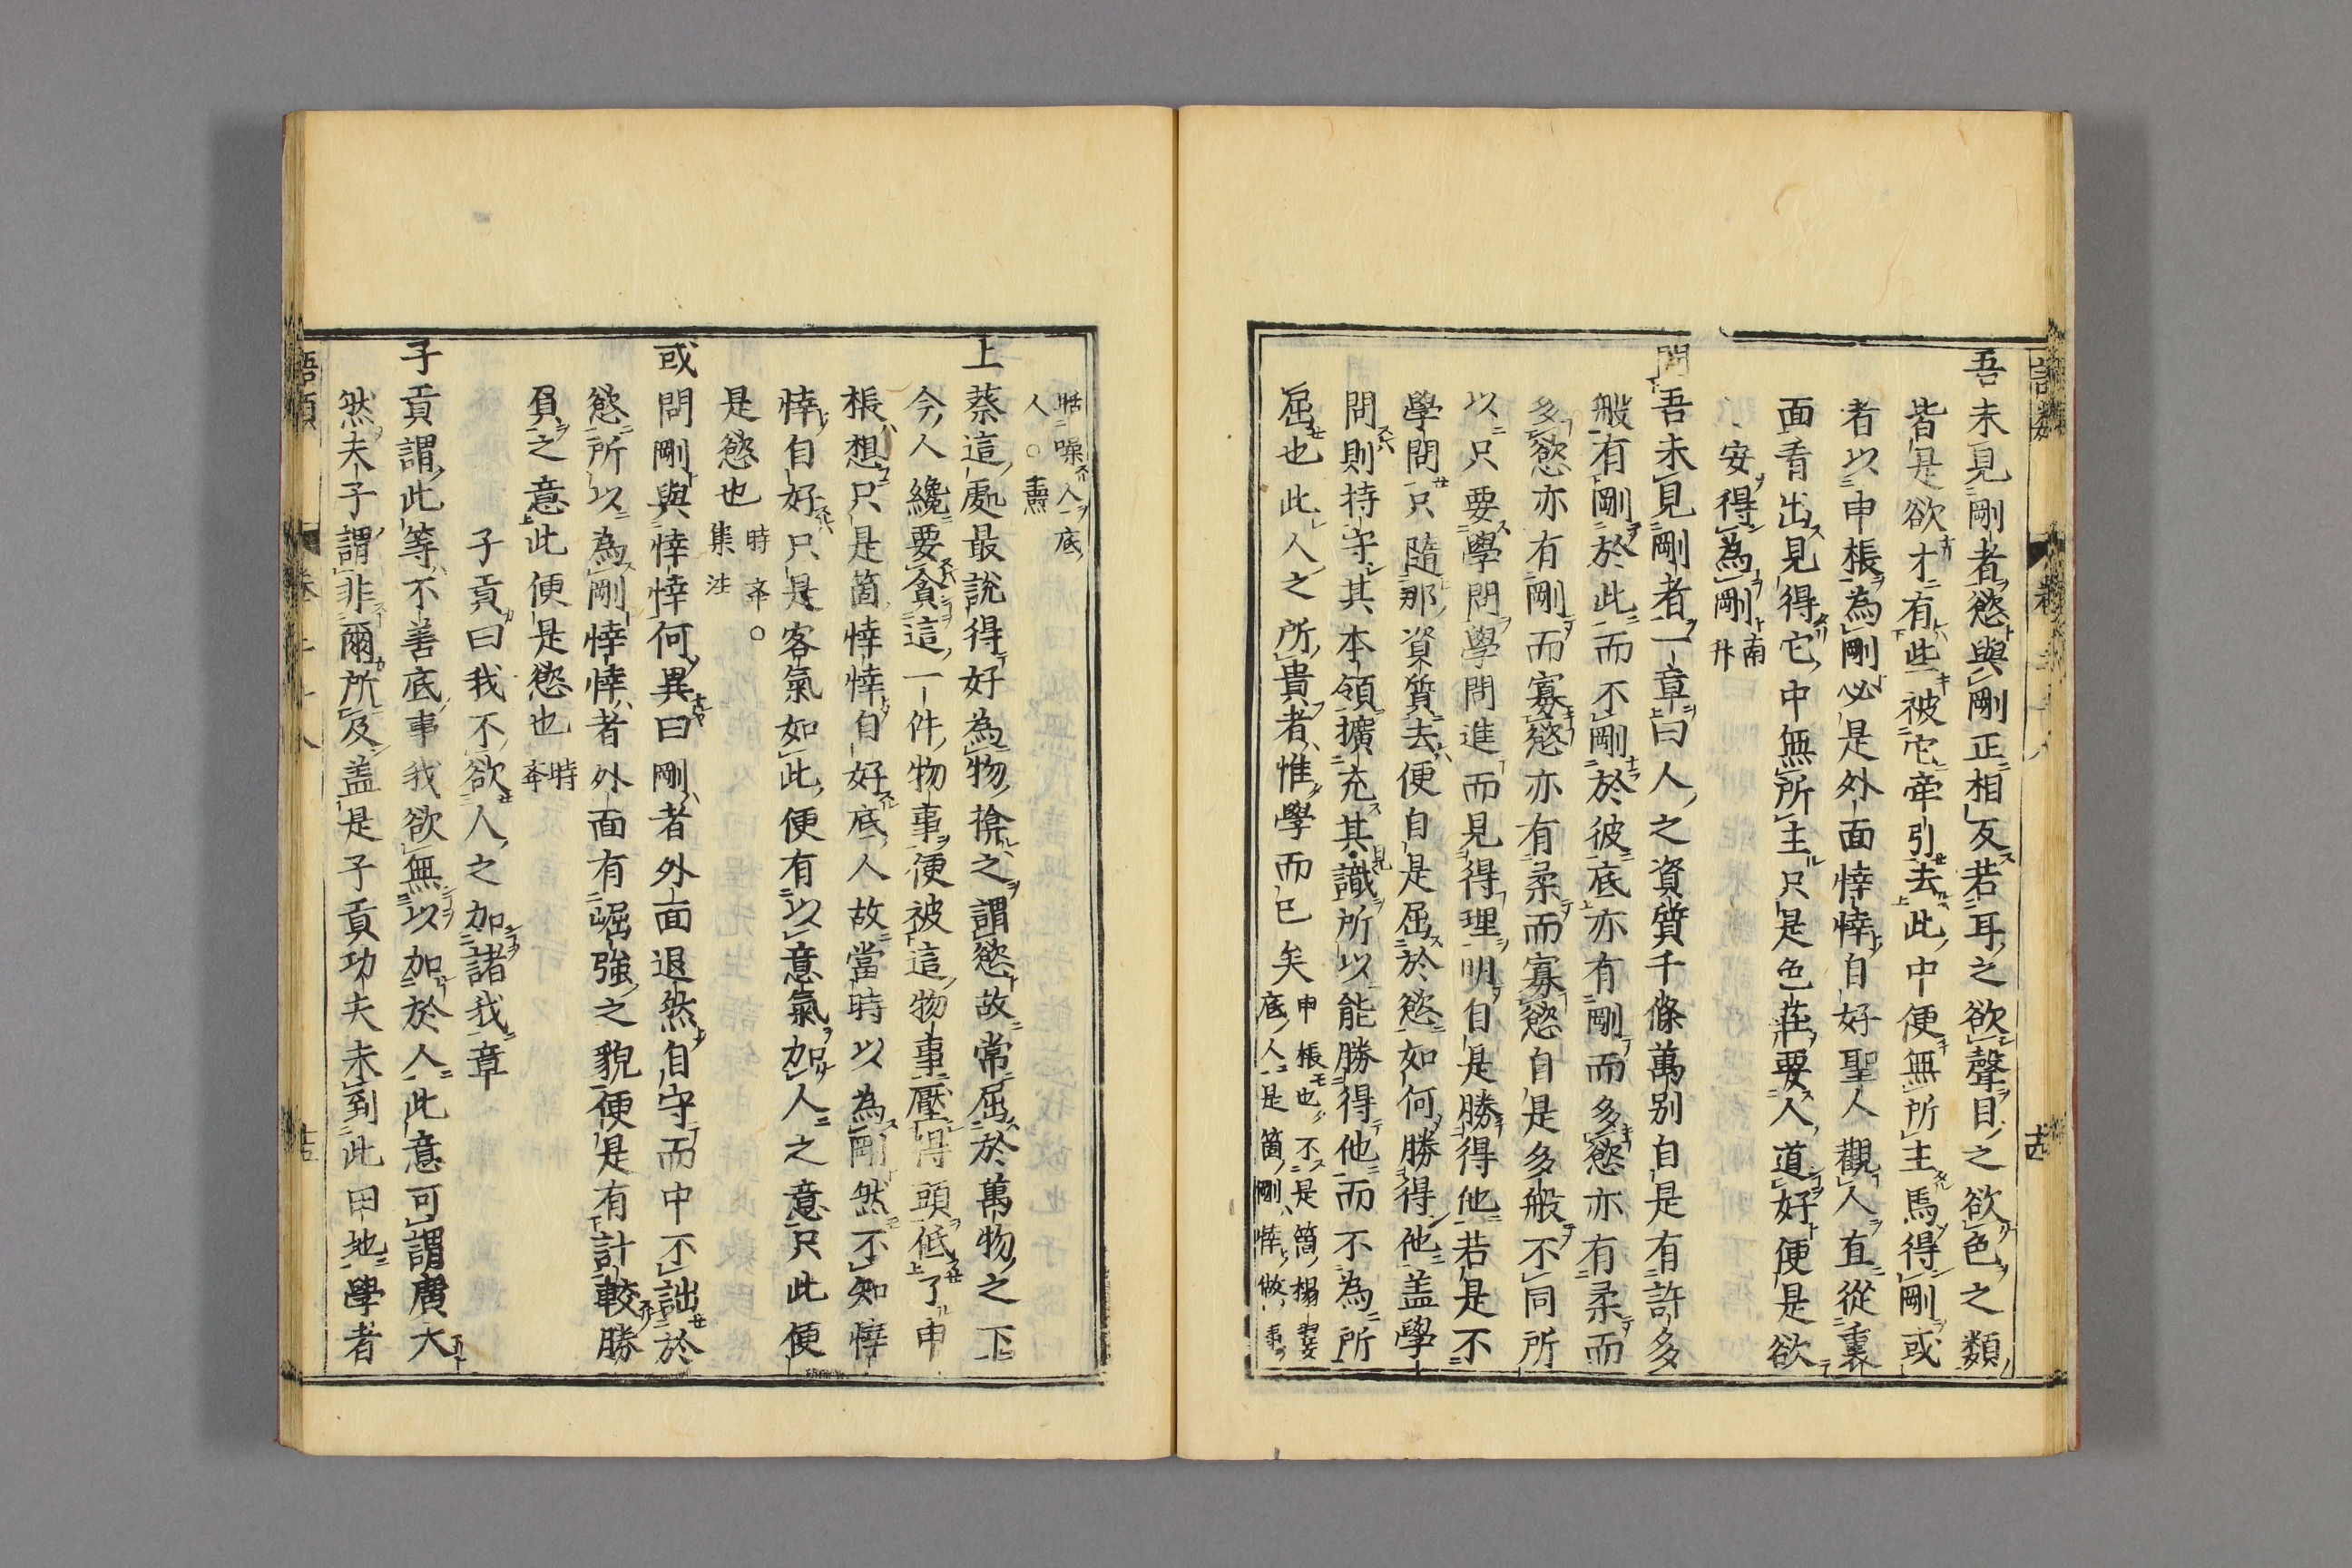 吾未見剛者慾與剛正相反若耳之欲聲目之欲色之類
皆是欲才有些被它牽引去此中便無所主焉得剛或
者以申棖為剛必是外面悻悻自好聖人觀人直從裏
面看出見得它中無所主只是色莊要人道好便是欲
安得為剛南升
問吾未見剛者一章曰人之資質千條萬别自是有許多
般有剛於此而不剛於彼底亦有剛而多慾亦有柔而
多慾亦有剛而寡慾亦有柔而寡慾自是多般不同所
以只要學問學問進而見得理明自是勝得他若是不
學問只隨那資質去便自是屈於慾如何勝得他盖學
問則持守其本領擴充其識所以能勝得他而不為所
屈也此人之所貴者惟學而已矣申棖也不是箇榻翣
底人是箇剛悻做事
聒噪人底
人○燾
上蔡這處最說得好為物揜之謂慾故常屈於萬物之下
今人纔要貪這一件物事便被這物事壓得頭低了申
棖想只是箇悻悻自好底人故當時以為剛然不知悻
悻自好只是客氣如此便有以意氣加人之意只此便
是慾也時𠦝○
集注
或問剛與悻悻何異曰剛者外面退然自守而中不詘於
慾所以為剛悻悻者外面有崛強之貌便是有計較勝
負之意此便是慾也時𠦝
子貢曰我不欲人之加諸我章
子貢謂此等不善底事我欲無以加於人此意可謂廣大
然夫子謂非爾所及盖是子貢功夫未到此田地學者